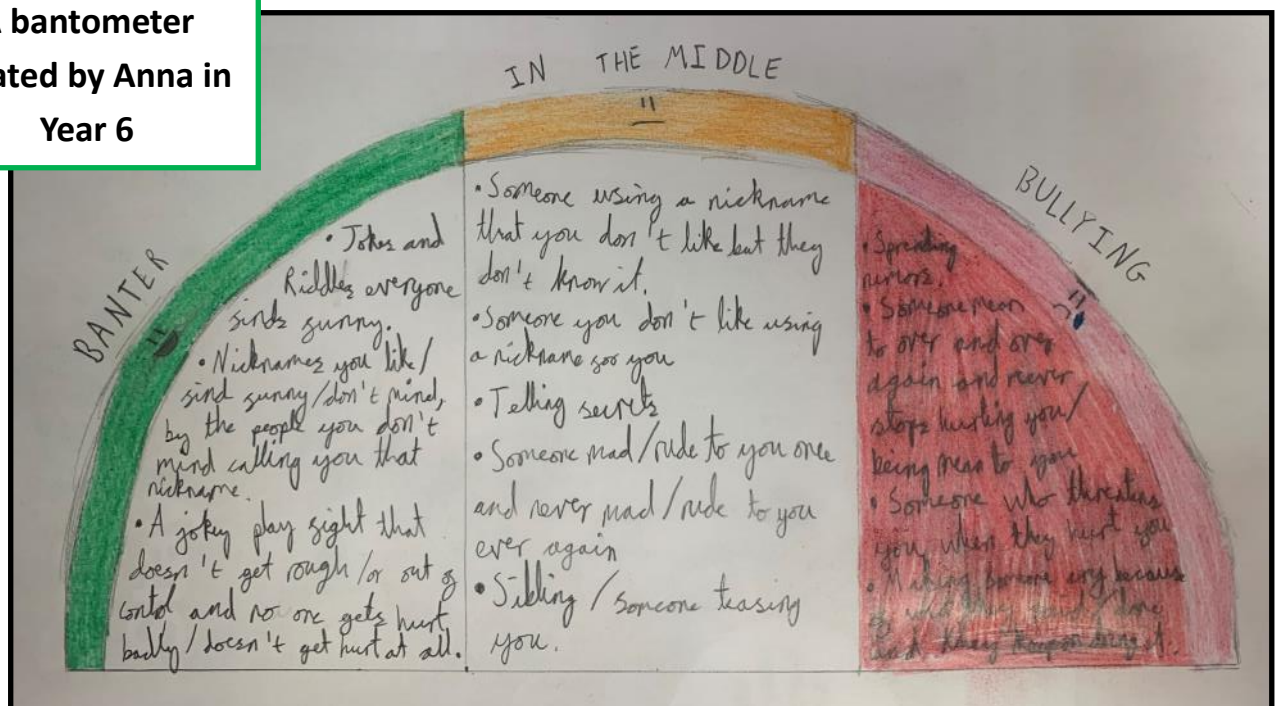 bantometer
ated by Anna in
Year 6
IN THE MIDDLE
BANTER
BULLYING
• Jokes and
Riddles everyone
finds funny.
• Nicknames you like/
find funny/don't mind,
by the people you don't
mind calling you that
nickname.
• A jokey play fight that
doesn't get rough/or out of
contol and no one gets hurt
badly/doesn't get hurt at all.
• Someone using a nickname
that you don't like but they
don't know it.
• Someone you don't like using
a nickname for you
• Telling secrets
• Someone mad/rude to you once
and never mad/rude to you
ever again
• Sibling/someone teasing
you.
• Spreading
rumors.
• Someone mean
to over and over
again and never
stops hurting you/
being mean to you
• Someone who threatens
you, when they hurt you
• Making someone cry because
of who they said/done
and they